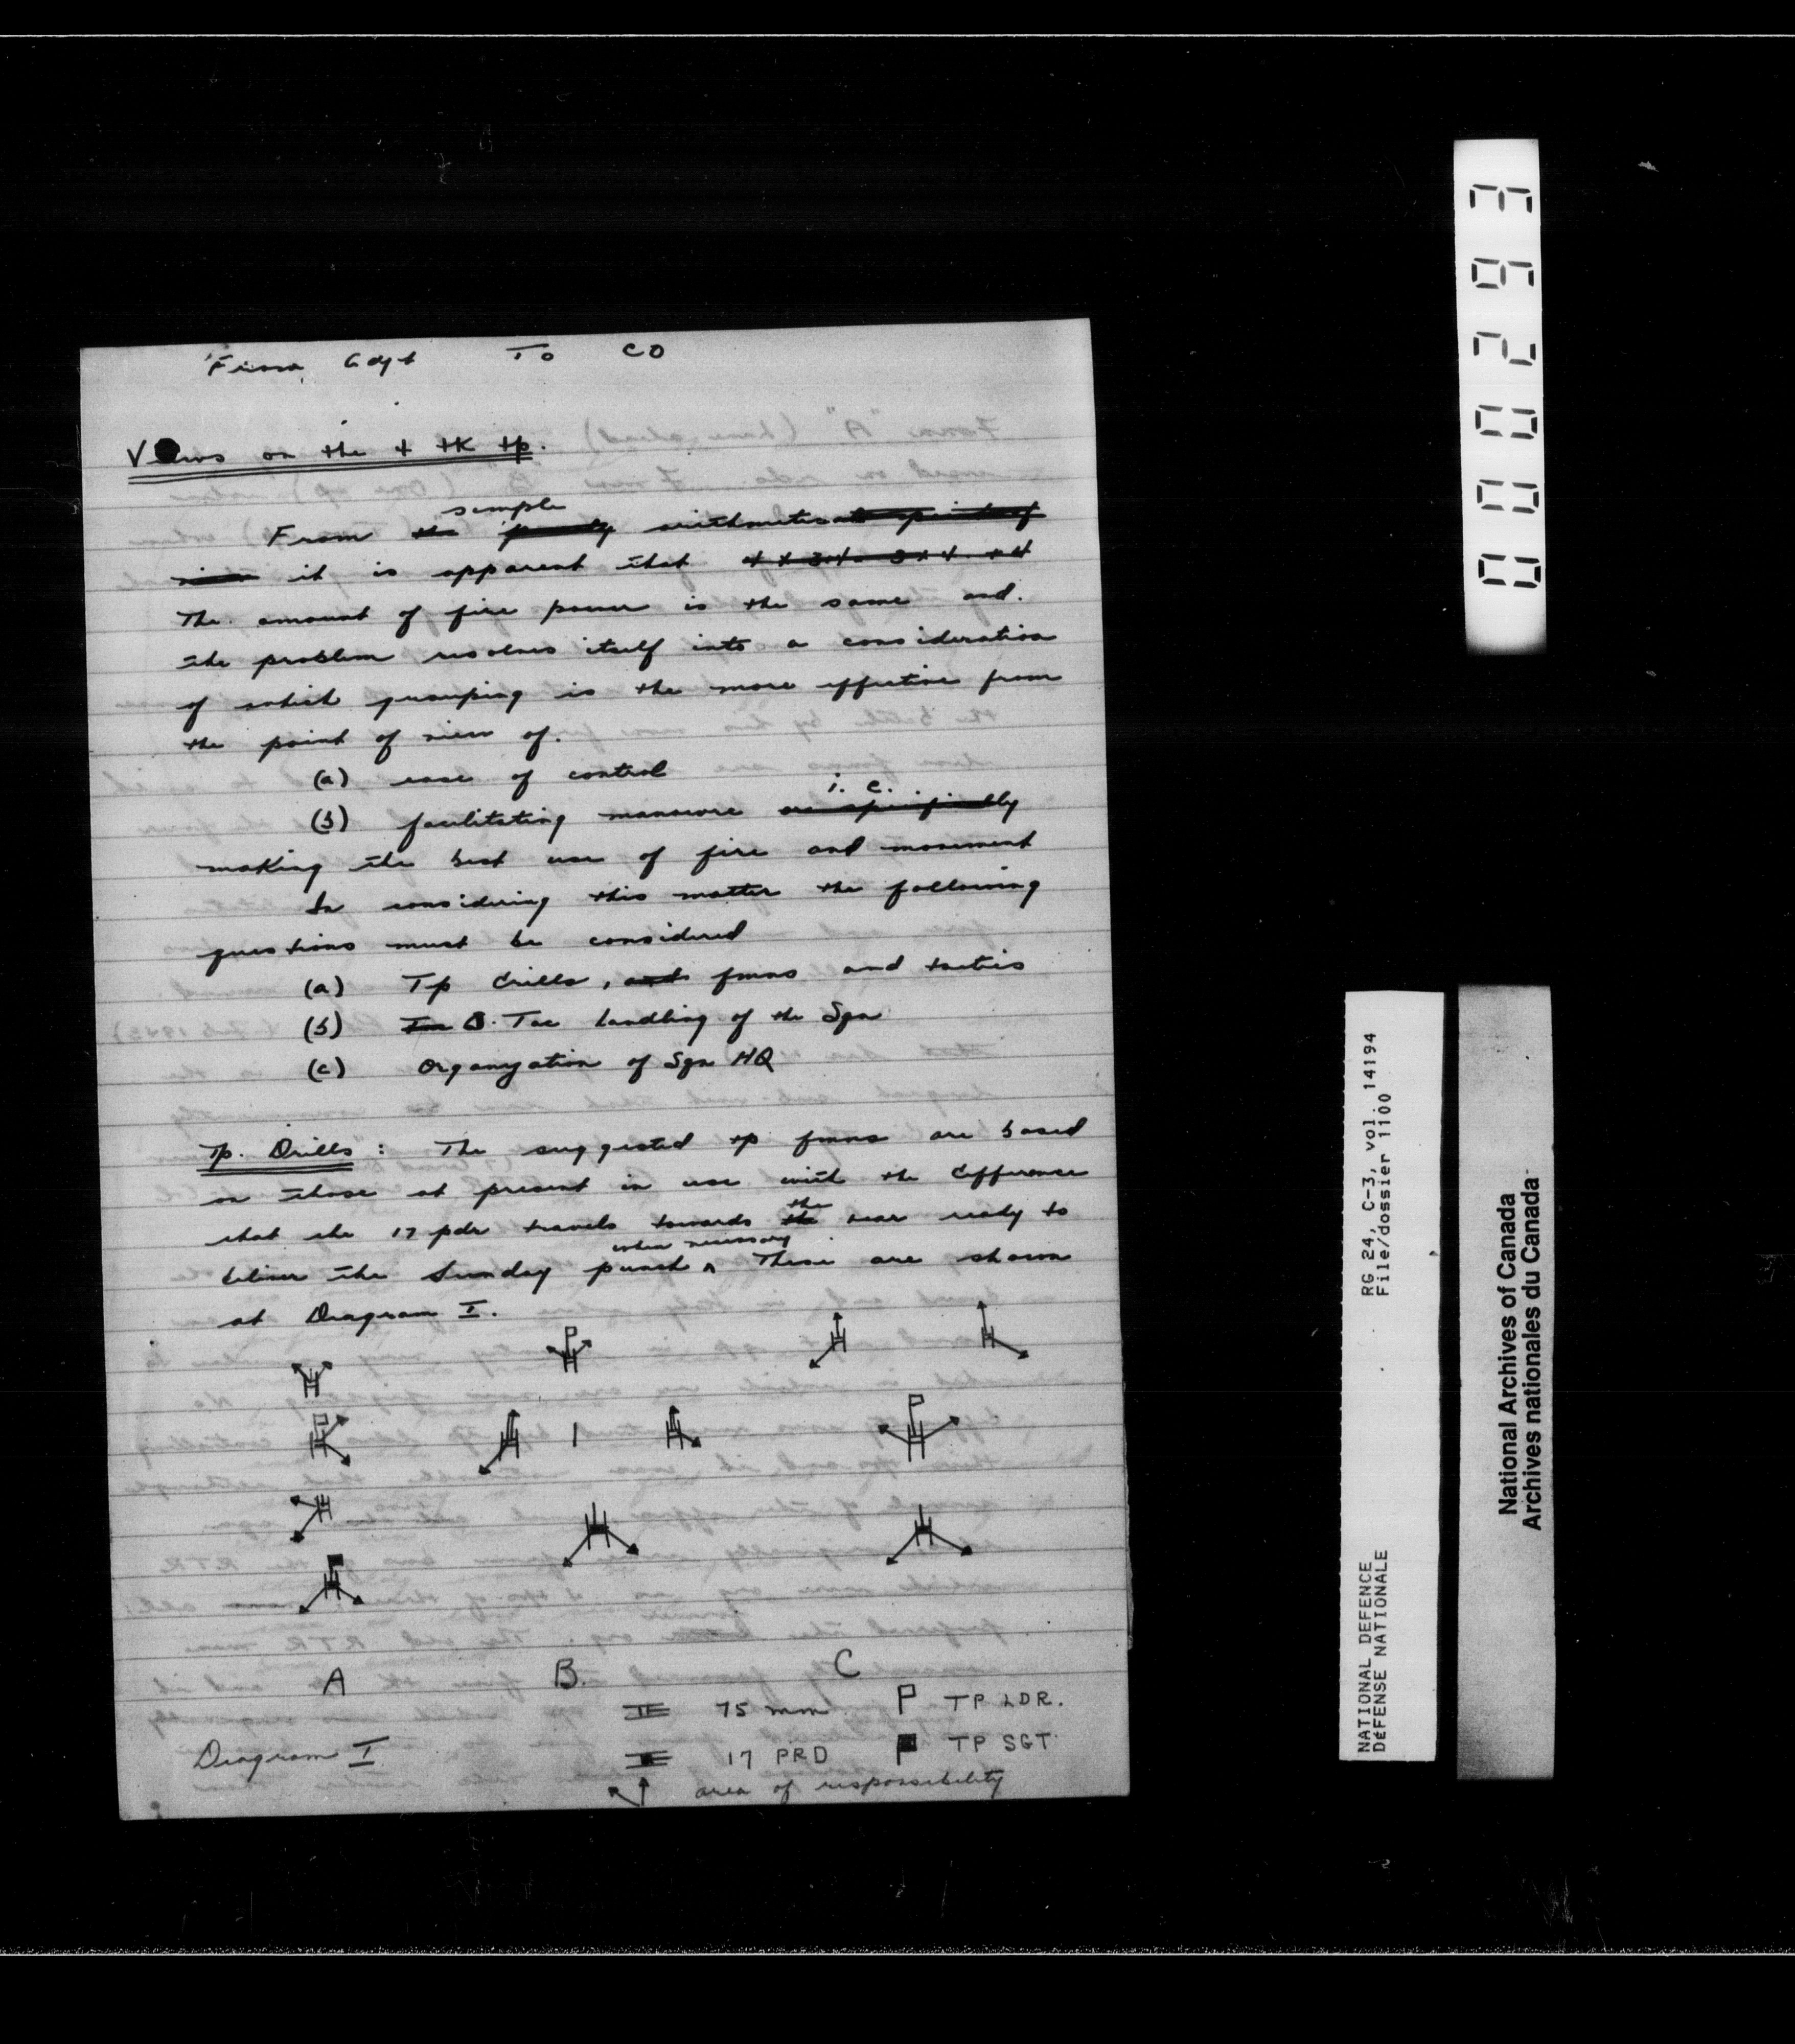 From Adjt To CO
Views on the 4 tk tp.
simple
From the purely arithmetic
it is apparent that 4 x 3 + 4 = 3 x 4 + 4
The amount of fire power is the same and.
the problem resolves itself into a consideration
of which grouping is the more effective from
the point of view of.
(a) ease of control
i. e.
(b) facilitating manouvre or specifically
making the best use of fire and movement
In considering this matter the following
questions must be considered
(a) Tp drills, and fmns and tactics
(b) Tac handling of the Sqn
(c) Organization of Sqn HQ
Tp. Drills : The suggested tp fmns are based
on those at present in use with the difference
the
that the 17 pdr travels towards the rear ready to
when necessary
deliver the Sunday punch ^ These are shown
at Diagram I.
A B. C
75 mm P TP LDR.
Diagram I. 17 PRD TP SGT.
area of responsibility
0000293
RG 24, C-3, vol. 14194
File/dossier 1100
NATIONAL DEFENCE
DÉFENSE NATIONALE
National Archives of Canada
Archives nationales du Canada